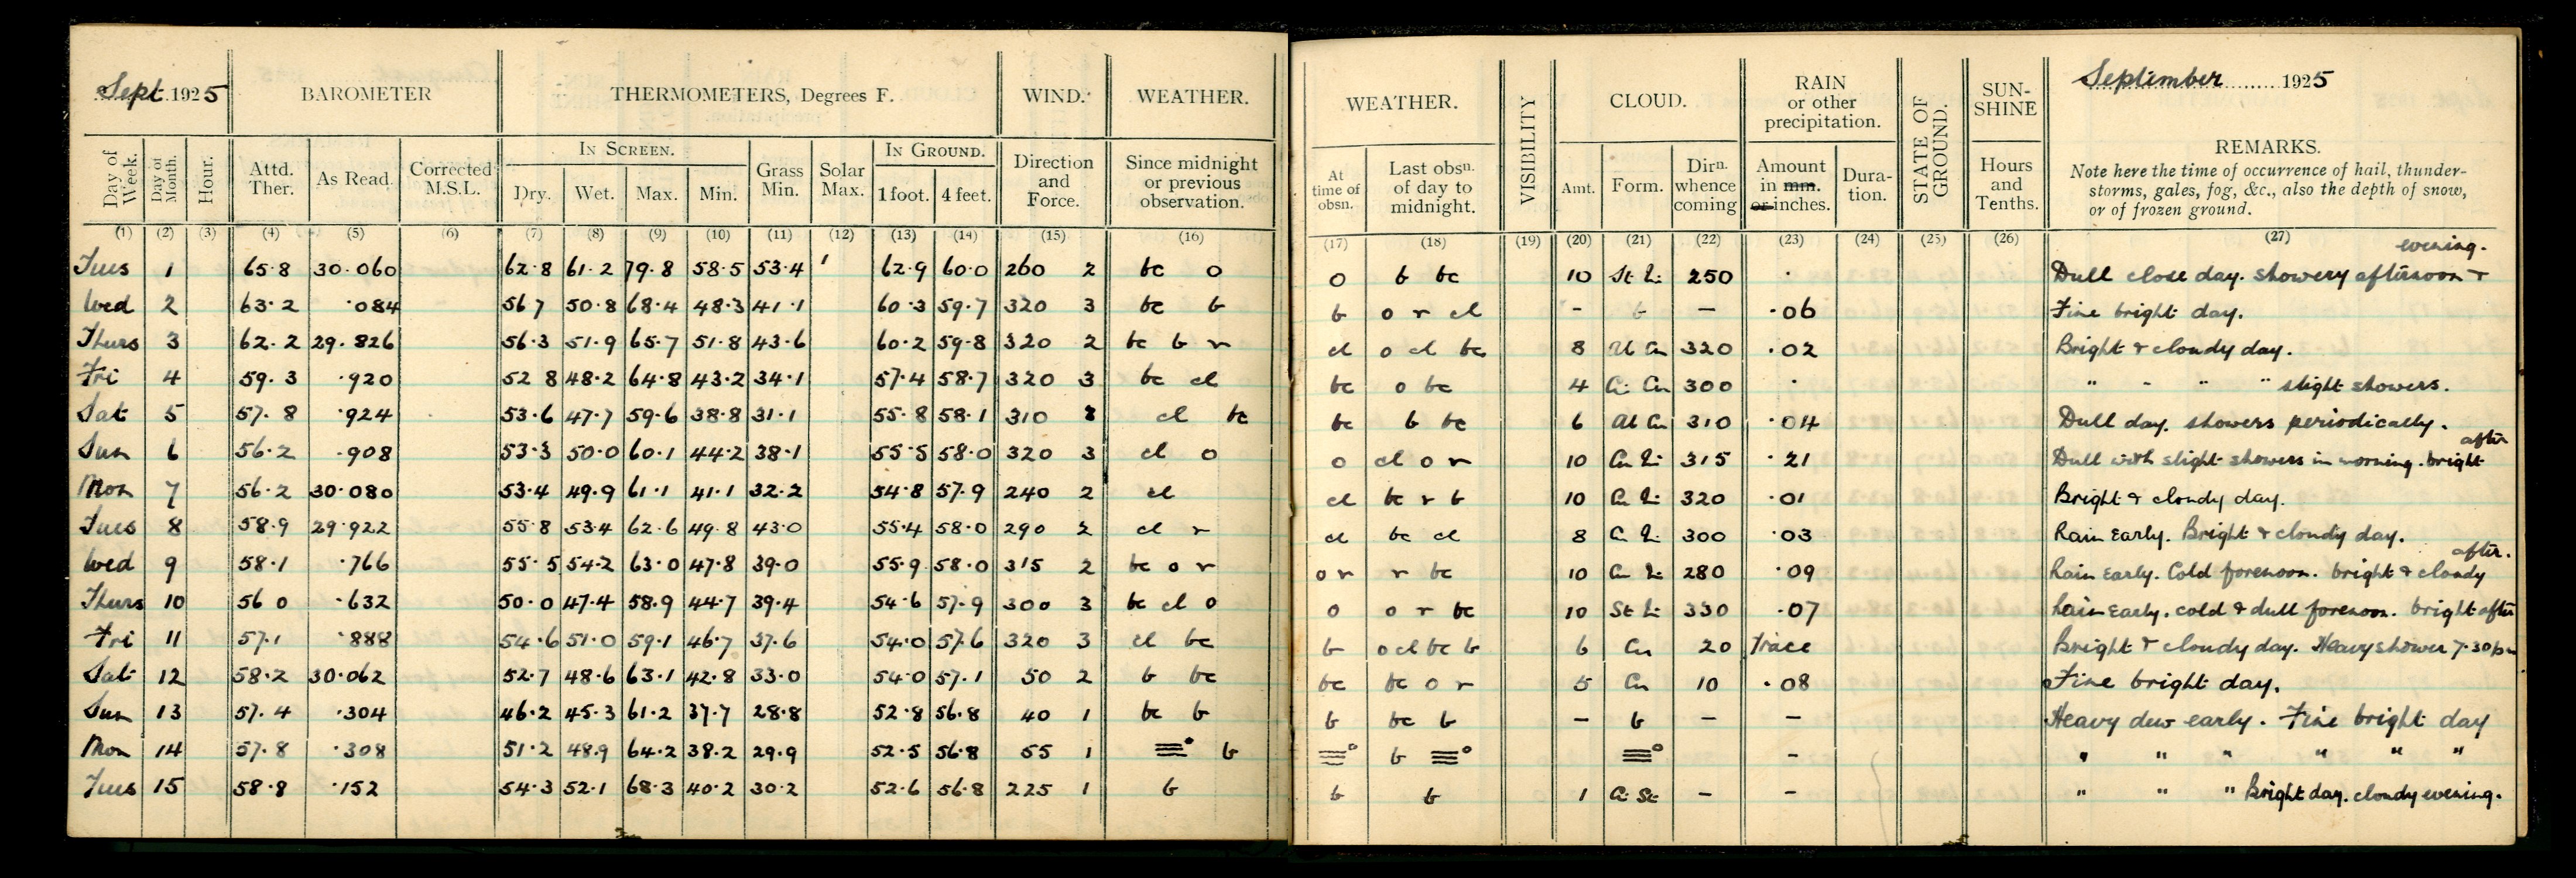 Sept. 1925 BAROMETER THERMOMETERS, Degrees F. WIND. WEATHER.
Day of Week. Day of Month. Hour. Attd. Ther. As Read. Corrected M.S.L. IN SCREEN. Dry. Wet. Max. Min. Grass Min. Solar Max. IN GROUND. 1 foot. 4 feet. Direction and Force. Since midnight or previous observation.
(1) (2) (3) (4) (5) (6) (7) (8) (9) (10) (11) (12) (13) (14) (15) (16)
Tues 1 65.8 30.060 62.8 61.2 79.8 58.5 53.4 62.9 60.0 260 2 bc o
Wed 2 63.2 .084 56 7 50.8 68.4 48.3 41.1 60.3 59.7 320 3 bc b
Thurs 3 62.2 29.826 56.3 51.9 65.7 51.8 43.6 60.2 59.8 320 2 bc b r
Fri 4 59.3 .920 52 8 48.2 64.8 43.2 34.1 57.4 58.7 320 3 bc cl
Sat 5 57.8 .924 53.6 47.7 59.6 38.8 31.1 55.8 58.1 310 cl bc
Sun 6 56.2 .908 53.3 50.0 60.1 44.2 38.1 55.5 58.0 320 3 cl o
Mon 7 56.2 30.080 53.4 49.9 61.1 41.1 32.2 54.8 57.9 240 2 cl
Tues 8 58.9 29.922 55.8 53.4 62.6 49.8 43.0 55.4 58.0 290 2 cl r
Wed 9 58.1 .766 55.5 54.2 63.0 47.8 39.0 55.9 58.0 315 2 bc o r
Thurs 10 56 0 .632 50.0 47.4 58.9 44.7 39.4 54.6 57.9 300 3 bc cl o
Fri 11 57.1 .888 54.6 51.0 59.1 46.7 37.6 54.0 57.6 320 3 cl bc
Sat 12 58.2 30.062 52.7 48.6 63.1 42.8 33.0 54.0 57.1 50 2 b bc
Sun 13 57.4 .304 46.2 45.3 61.2 37.7 28.8 52.8 56.8 40 1 bc b
Mon 14 57.8 .308 51.2 48.9 64.2 38.2 29.9 52.5 56.8 55 1 ≡° b
Tues 15 58.8 .152 54.3 52.1 68.3 40.2 30.2 52.6 56.8 225 1 b
WEATHER. VISIBILITY CLOUD. RAIN or other precipitation. STATE OF GROUND. SUNSHINE September 1925
At time of obsn. Last obsn. of day to midnight. Amt. Form. Dirn. whence coming Amount in mm. or inches. Duration. Hours and Tenths. REMARKS.
Note here the time of occurrence of hail, thunderstorms, gales, fog, &c., also the depth of snow, or of frozen ground.
(17) (18) (19) (20) (21) (22) (23) (24) (25) (26) (27)
o b bc 10 250 . Dull close day. showery afternoon & evening.
b o r cl - b - .06 Fine bright day.
cl o cl bc 8 Al Cu 320 .02 Bright & cloudy day.
bc o bc 4 Ci Cu 300 . " - " " slight showers.
bc b bc 6 Al Cu 310 .04 Dull day. showers periodically.
o cl o r 10 315 .21 Dull with slight showers in morning. bright after
cl bc r b 10 320 .01 Bright & cloudy day.
cl bc cl 8 300 .03 Rain Early. Bright & cloudy day.
o r r bc 10 280 .09 Rain Early. Cold forenoon. bright & cloudy after.
o o r bc 10 330 .07 Rain Early. cold & dull forenoon. bright after
b o cl bc b 6 Cu 20 Trace Bright & cloudy day. Heavy shower 7.30 pm
bc bc o r 5 Cu 10 .08 Fine bright day.
b bc b - b - - Heavy dew early. Fine bright day
≡° b ≡° ≡° - " " " " " "
b b 1 Ci St - - " " " Bright day. cloudy evening.